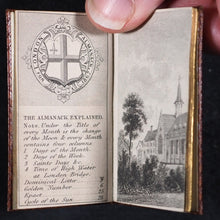 LONDON ALMANACK
THE ALMANACK EXPLAINED.
Note. Under the Title of
every Month is the change
of the Moon & every Month
contains four columns
1 Days of the Month.
2 Days of the Week.
3 Saints Days &c.
4 Time of High Water
at London Bridge.
Dominical Letter
Golden Number
Epact
Cycle of the Sun